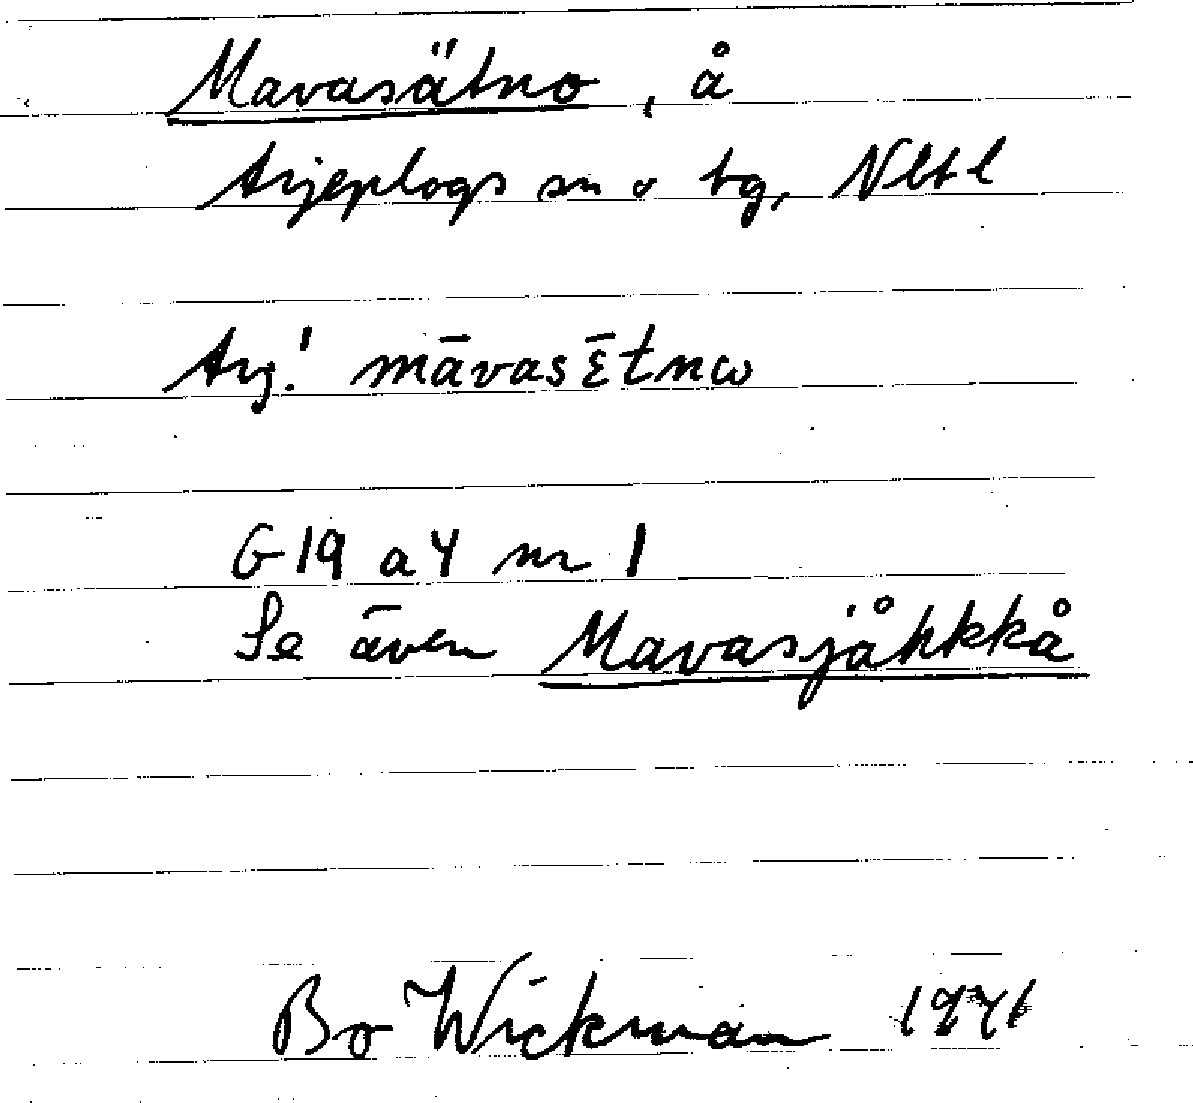 Mavasätno, å
Arjeplogs sn o tg, Nbtl
Arj! māvasɛ̄tnω
G 19 a 4 nr 1
Se även Mavasjåhkkå
Bo Wickman